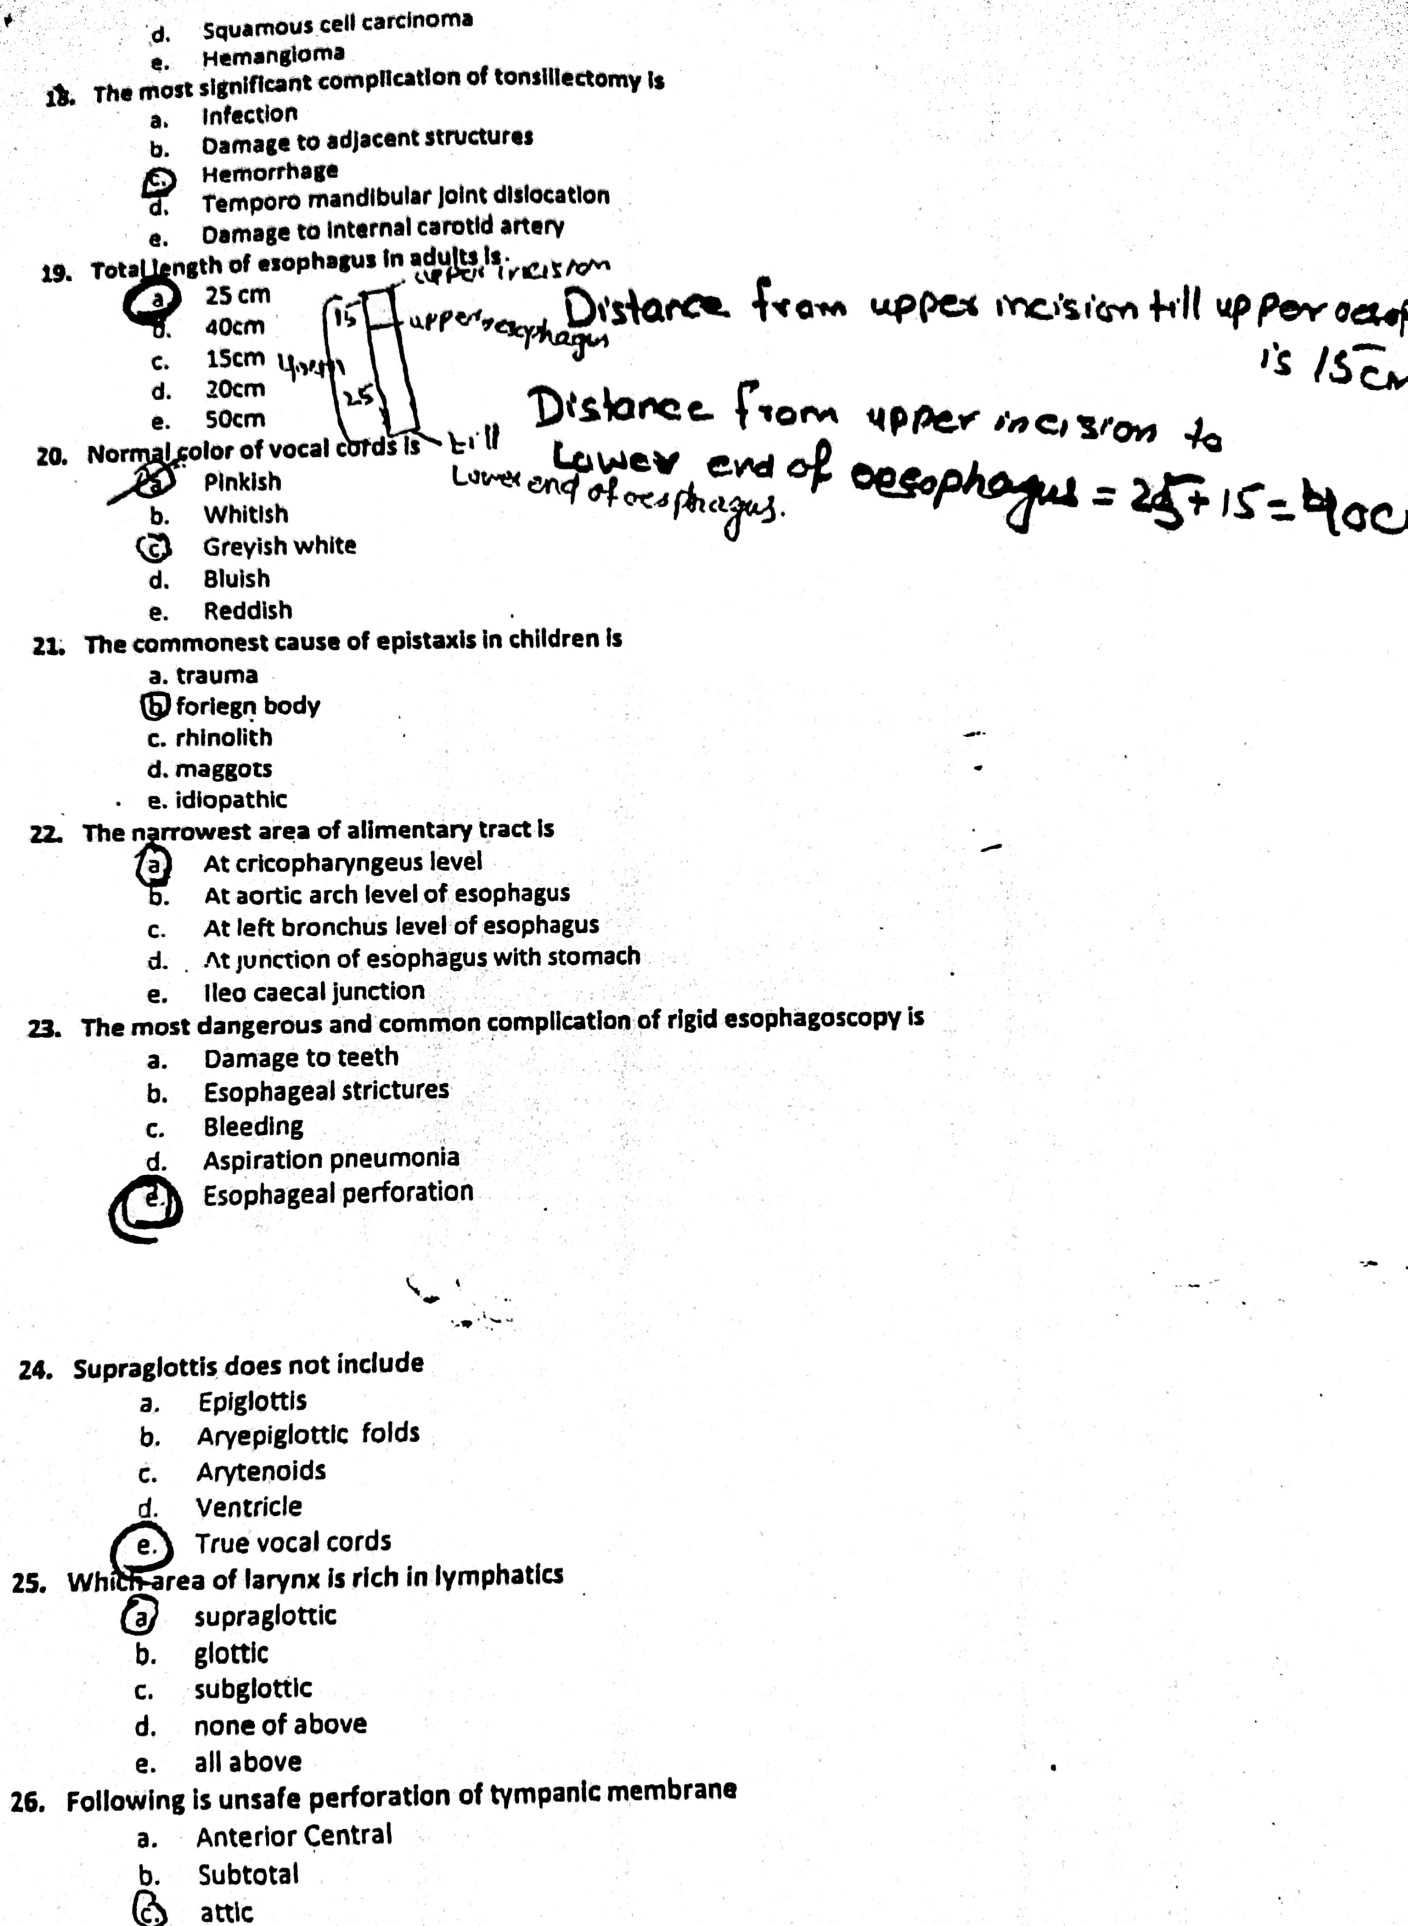 d. Squamous cell carcinoma
e. Hemangioma
18. The most significant complication of tonsillectomy is
a. Infection
b. Damage to adjacent structures
c. Hemorrhage
d. Temporo mandibular joint dislocation
e. Damage to internal carotid artery
19. Total length of esophagus in adults is.
upper incision
a. 25 cm
b. 40cm
c. 15cm
d. 20cm
e. 50cm
15
upper
25
till
Lower end of oesphagus.
Distance from upper incision till upper
is 15 cm
Distance from upper incision to
Lower end of oesophagus = 25 + 15 = 40c
20. Normal color of vocal cords is
a. Pinkish
b. Whitish
c. Greyish white
d. Bluish
e. Reddish
21. The commonest cause of epistaxis in children is
a. trauma
b foriegn body
c. rhinolith
d. maggots
e. idiopathic
22. The narrowest area of alimentary tract is
a At cricopharyngeus level
b. At aortic arch level of esophagus
c. At left bronchus level of esophagus
d. At junction of esophagus with stomach
e. Ileo caecal junction
23. The most dangerous and common complication of rigid esophagoscopy is
a. Damage to teeth
b. Esophageal strictures
c. Bleeding
d. Aspiration pneumonia
e. Esophageal perforation
24. Supraglottis does not include
a. Epiglottis
b. Aryepiglottic folds
c. Arytenoids
d. Ventricle
e. True vocal cords
25. Which area of larynx is rich in lymphatics
a supraglottic
b. glottic
c. subglottic
d. none of above
e. all above
26. Following is unsafe perforation of tympanic membrane
a. Anterior Central
b. Subtotal
c. attic